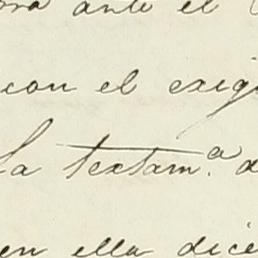 ante el
con el exig
la textam.ª d
en ella dice